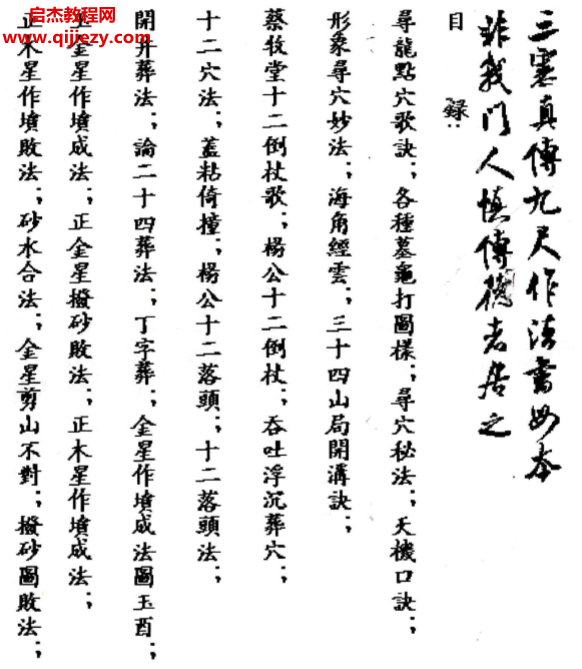 启杰教程网
www.qijiezy.com
三寮真傳九尺作法書如本
非我門人慎傳德者居之
目錄：
尋龍點穴歌訣；各種墓龜打圖樣；尋穴秘法；天機口訣；
形象尋穴妙法；海角經雲；三十四山局開溝訣；
蔡牧堂十二倒杖歌；楊公十二倒杖；吞吐浮沉葬穴；
十二穴法；蓋粘倚撞；楊公十二落頭；十二落頭法；
開井葬法；論二十四葬法；丁字葬；金星作墳成法圖玉酉；
金星作墳成法；正金星撥砂敗法；正木星作墳成法；
正木星作墳敗法；砂水合法；金星剪山不對；撥砂圖敗法；